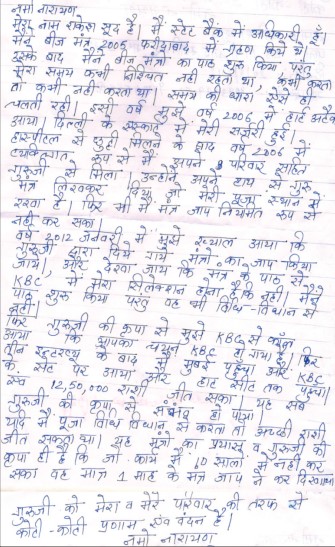 नमो नारायण
मेरा नाम राकेश सूद है। मैं स्टेट बैंक में अधिकारी हूँ।
मैंने बीज मंत्र 2005 फरीदाबाद में ग्रहण किये थे।
इसके बाद मैंने बीज मंत्रों का पाठ शुरू किया परंतु
मेरा समय कभी निश्चित नहीं रहता था, कभी करता
था कभी नहीं करता था। समय की धारा ऐसे ही
चलती रही। इसी वर्ष मुझे वर्ष 2006 में हार्ट अटैक
आया। दिल्ली के एस्कॉर्ट में मेरी सर्जरी हुई।
हास्पिटल से छुट्टी मिलने के बाद वर्ष 2006 में
व्यक्तिगत रूप से मैं अपने परिवार सहित
गुरुजी से मिला। उन्होंने अपने हाथ से गुरु
मंत्र लिखकर दिया जो मेरी पूजा स्थान में
रखा है। फिर भी मैं मंत्र जाप नियमित रूप से
नहीं कर सका।
वर्ष 2012 जनवरी में मुझे ख्याल आया कि
गुरुजी द्वारा दिये गये मंत्रों का जाप किया
जाय, और देखा जाय कि मंत्र के पाठ से
KBC में मेरा सिलेक्शन होता है कि नहीं। मैंने
पाठ शुरू किया परंतु वह भी विधि-विधान से
नहीं।
फिर गुरुजी की कृपा से मुझे KBC से कॉल
आया कि आपका चयन KBC हो गया है। फिर
तीन इन्टरव्यू के बाद मैं मुंबई पहुंचा और KBC
के सेट पर आया और हाट सीट तक पहुंचा।
एवं 12,50,000 राशी जीत सका। यह सब
गुरुजी की कृपा से संभव हो पाया।
यदि मैं पूजा विधि विधान से करता तो अच्छी राशी
जीत सकता था। यह मंत्रों का प्रयास व गुरुजी की
कृपा ही है कि जो कार्य मैं 10 सालों से नहीं कर
सका वह मात्र 1 माह के मंत्र जाप ने कर दिखाया
गुरुजी को मेरा व मेरे परिवार की तरफ से
कोटी-कोटी प्रणाम एवं वंदन है।
नमो नारायण